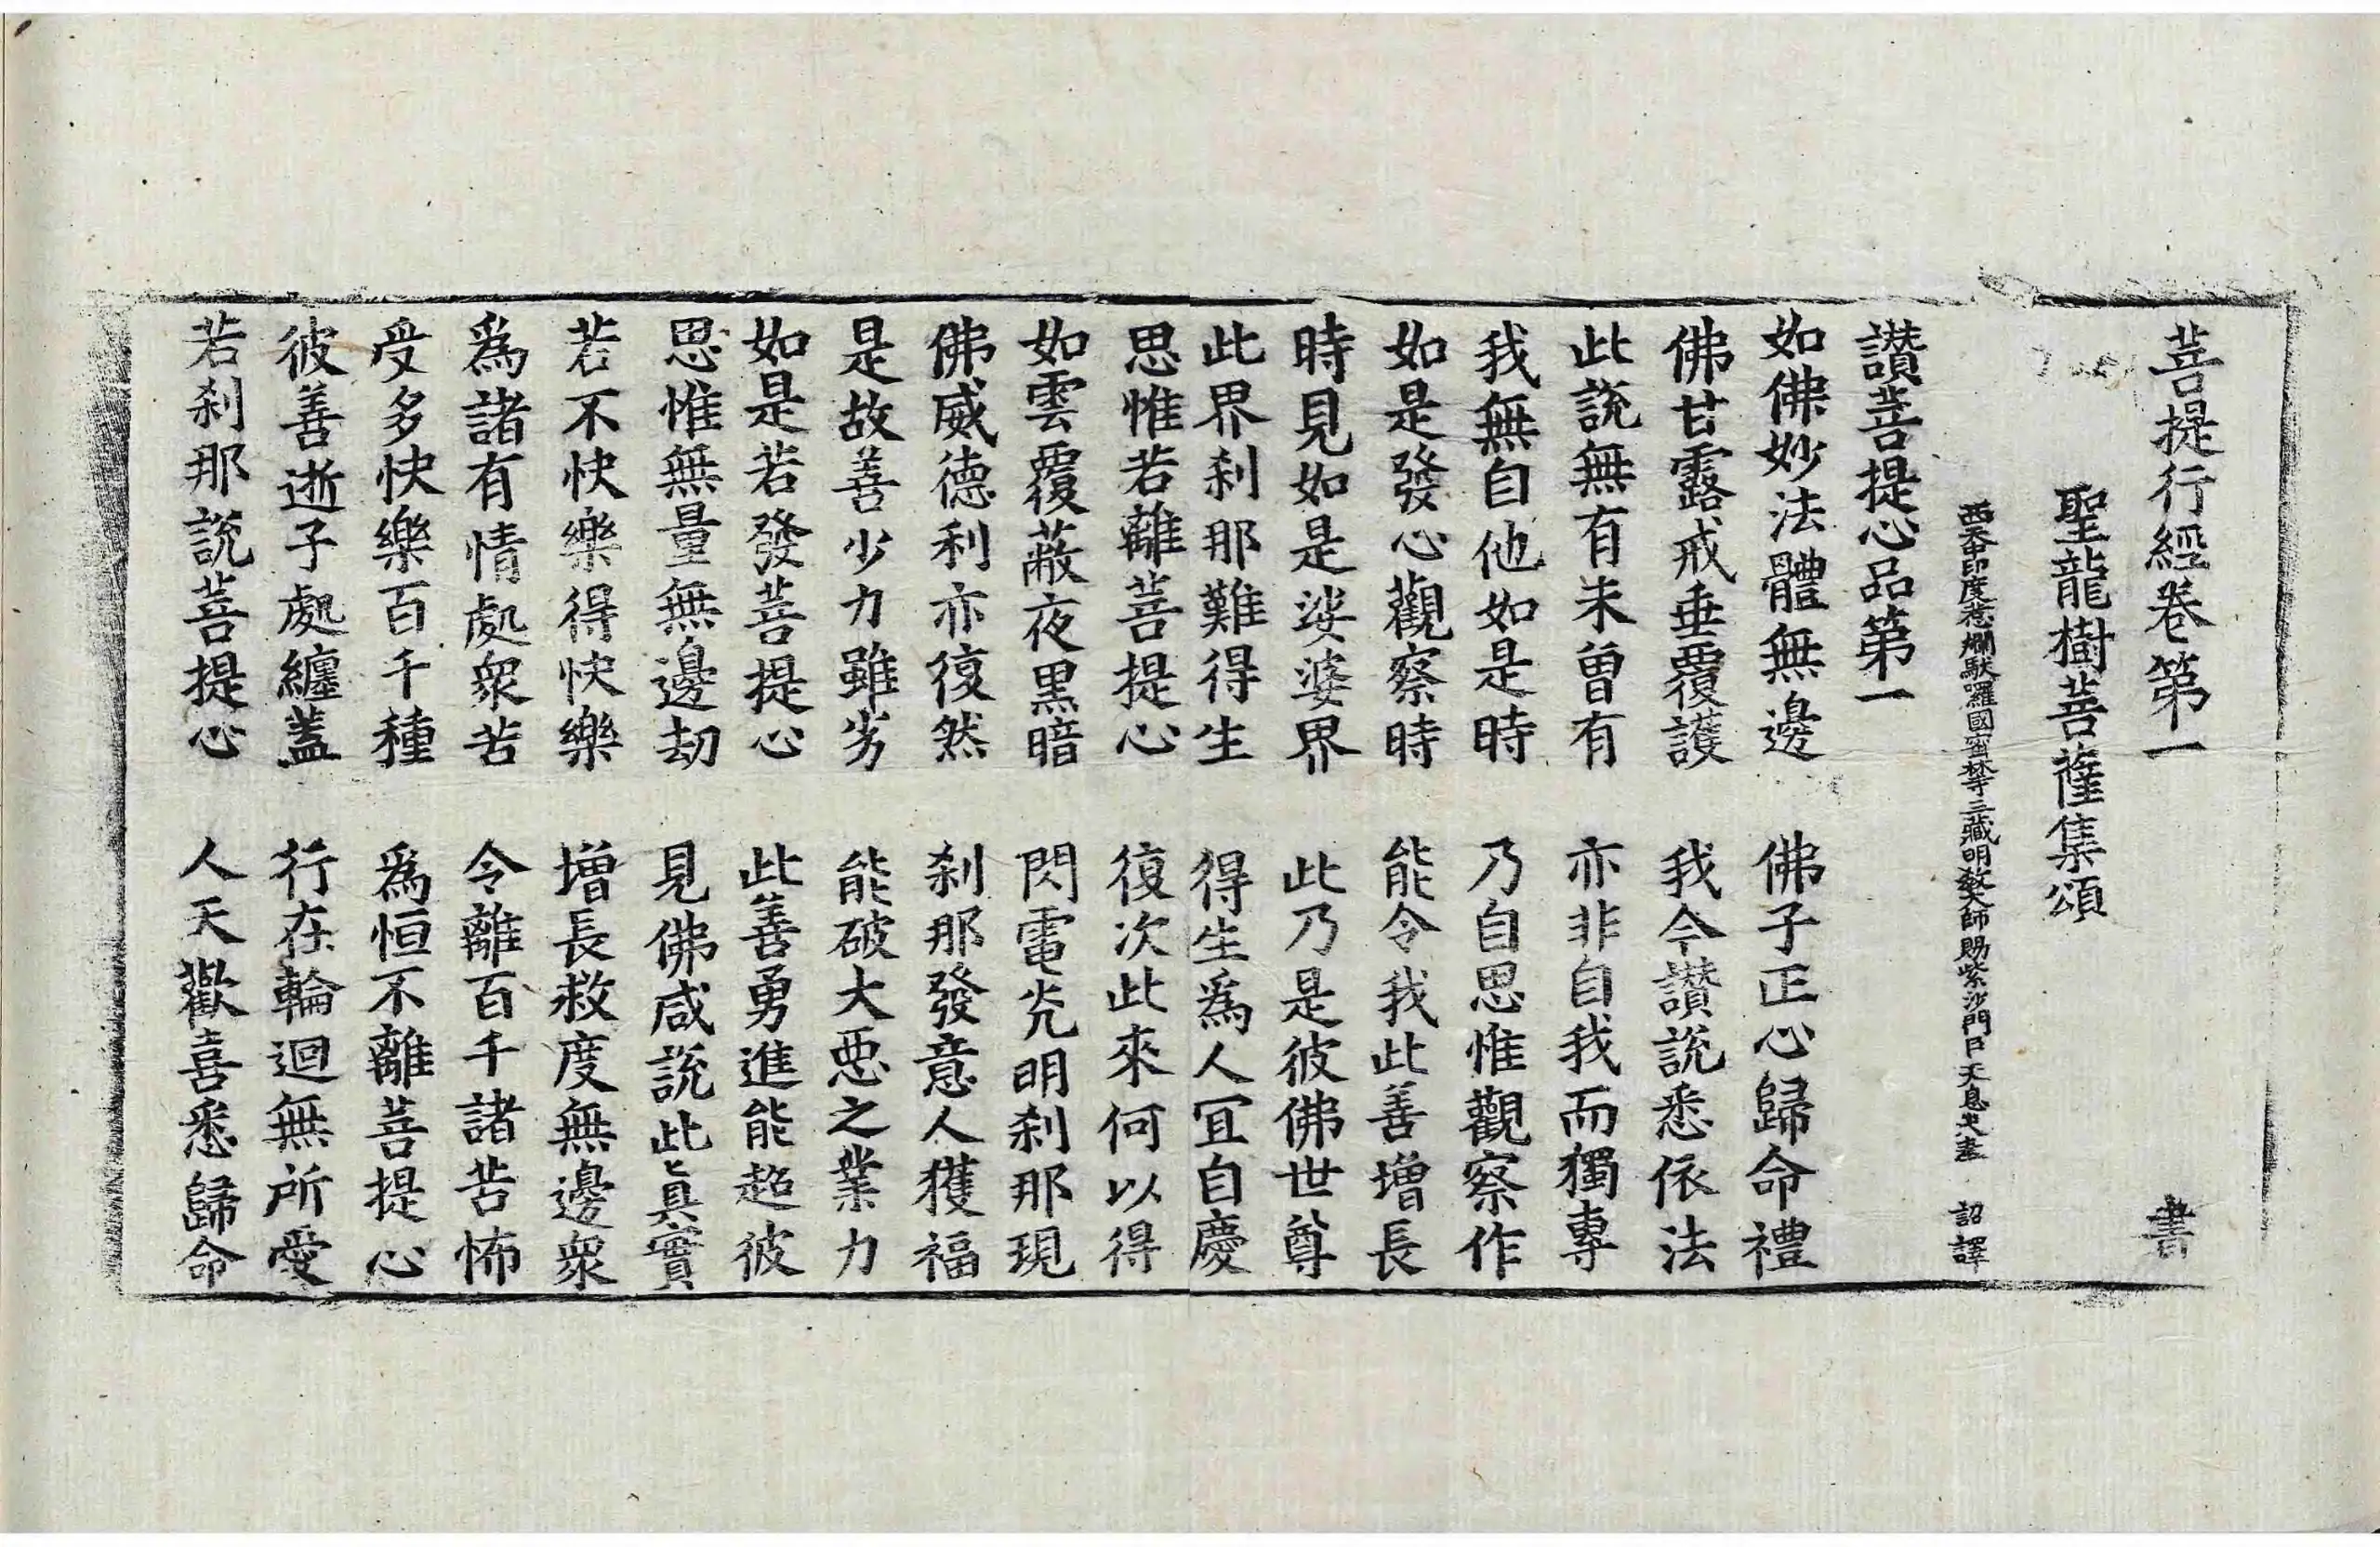 菩提行經卷第一 書
聖龍樹菩薩集頌
西天中印度惹爛馱羅國密林寺三藏明教大師賜紫沙門臣天息災奉 詔譯
讚菩提心品第一
如佛妙法體無邊 佛子正心歸命禮
佛甘露戒垂覆護 我今讚說悉依法
此說無有未曾有 亦非自我而獨專
我無自他如是時 乃自思惟觀察作
如是發心觀察時 能令我此善增長
時見如是娑婆界 此乃是彼佛世尊
此界剎那難得生 得生為人宜自慶
思惟若離菩提心 復次此來何以得
如雲覆蔽夜黑暗 閃電光明剎那現
佛威德利亦復然 剎那發意人獲福
是故善少力雖劣 能破大惡之業力
如是若發菩提心 此善勇進能超彼
思惟無量無邊劫 見佛咸說此真實
若不快樂得快樂 增長救度無邊眾
為諸有情處眾苦 令離百千諸苦怖
受多快樂百千種 為恒不離菩提心
彼善逝子處纏蓋 行在輪迴無所愛
若剎那說菩提心 人天歡喜悉歸命